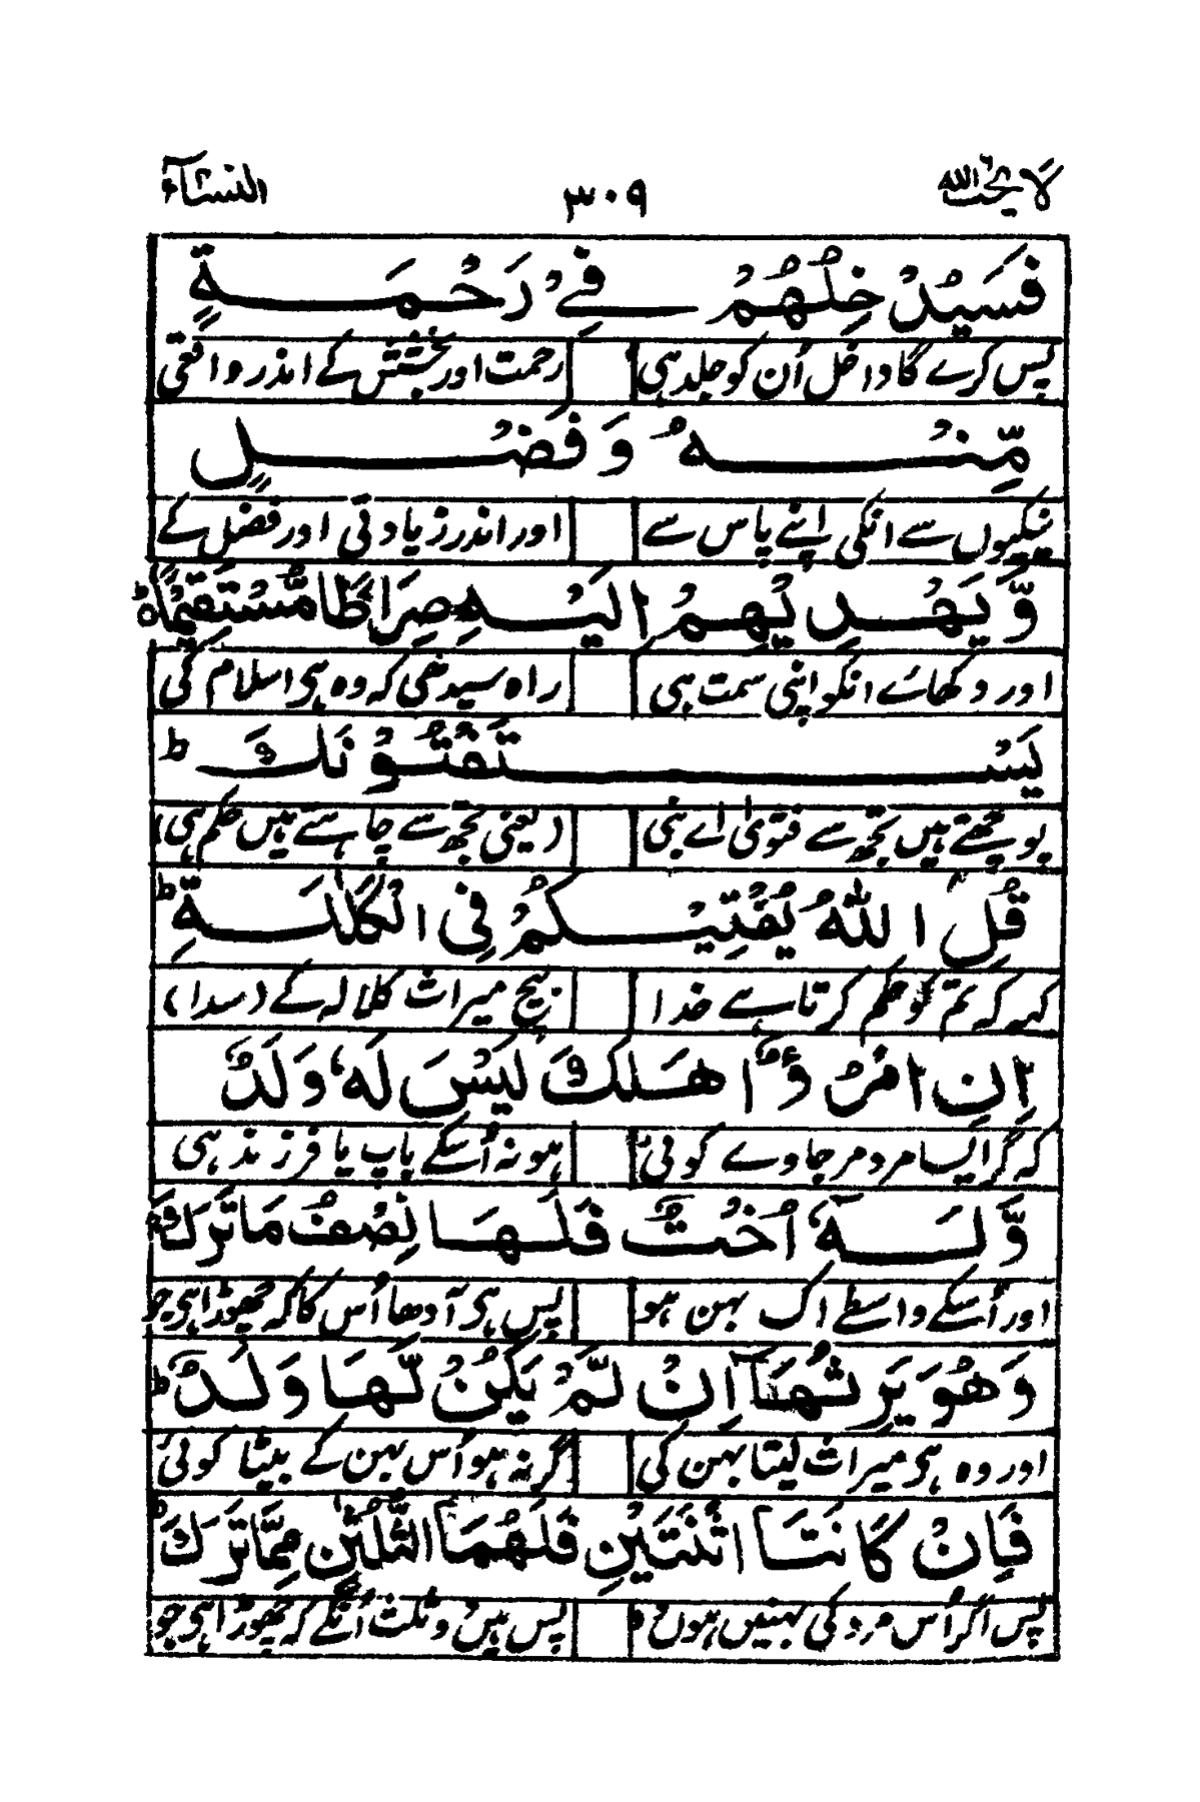 لَا يُحِبُّ اللّٰه ٣٠٩ النِّسَآء
فَسَيُدْخِلُهُمْ فِيْ رَحْمَةٍ
پس کرے گا داخل اُن کو جلد ہی رحمت اور بخشش کے اندر واقعی
مِّنْهُ وَفَضْلٍ
نیکیوں سے انکی اپنے پاس سے اور اندر زیادتی اور فضل کے
وَّيَهْدِيْهِمْ اِلَيْهِ صِرَاطًا مُّسْتَقِيْمًا ط
اور دکھائے انکو اپنی سمت ہی راہ سیدھی کہ وہ ہی اسلام کی
يَسْتَفْتُوْنَكَ ط
پوچھتے ہیں تجھ سے فتویٰ اے نبی (یعنی تجھ سے چاہتے ہیں حکم ہی)
قُلِ اللّٰهُ يُفْتِيْكُمْ فِى الْكَلٰلَةِ ط
کہہ کہ تم کو حکم کرتا ہے خدا بیچ میراث کلالہ کے (سدا)
اِنِ امْرُؤٌا هَلَكَ لَيْسَ لَهٗ وَلَدٌ
کہ گر ایسا مرد مر جاوے کوئی ہو نہ اُسکے باپ یا فرزند ہی
وَّلَهٗٓ اُخْتٌ فَلَهَا نِصْفُ مَا تَرَكَ ج
اور اُسکے واسطے اک بہن ہو پس ہی آدھا اُس کا کہ چھوڑا ہی جو
وَهُوَ يَرِثُهَآ اِنْ لَّمْ يَكُنْ لَّهَا وَلَدٌ ط
اور وہ ہی میراث لیتا بہن کی گر نہ ہو اُس بہن کے بیٹا کوئی
فَاِنْ كَانَتَا اثْنَتَيْنِ فَلَهُمَا الثُّلُثٰنِ مِمَّا تَرَكَ ط
پس اگر اُس مرد کی بہنیں ہوں دو پس ہیں دو ثلث اُنکے کہ چھوڑا ہی جو